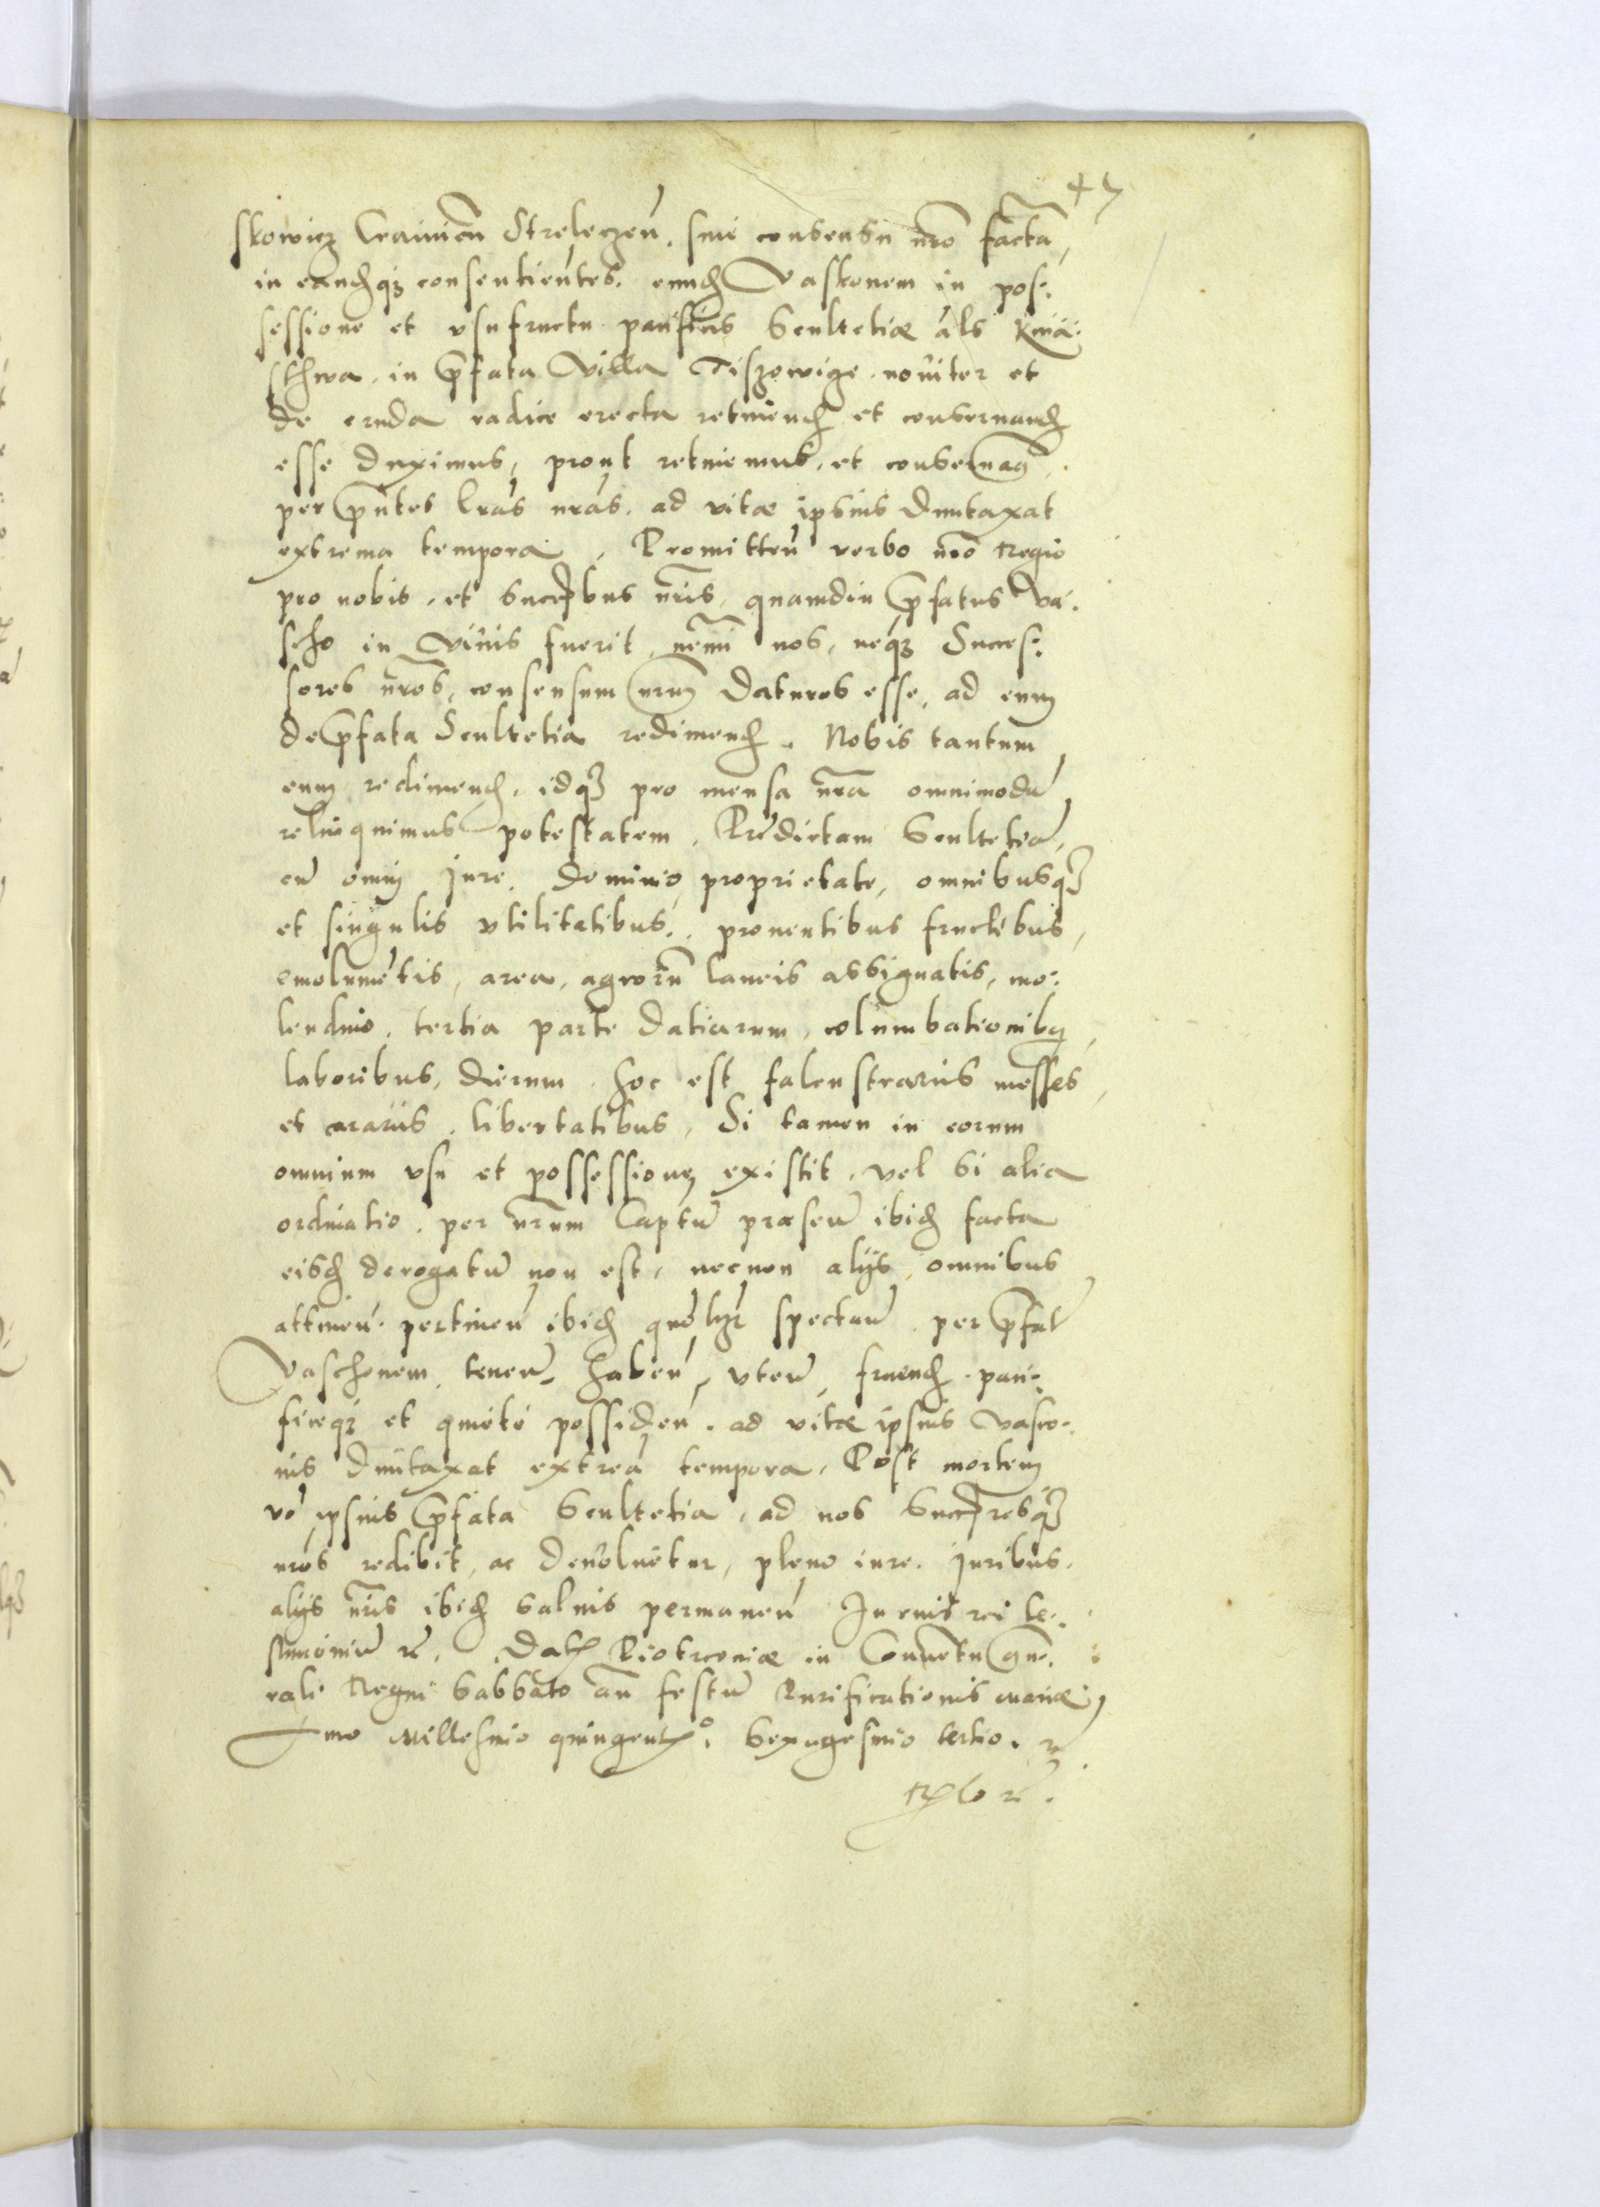 47
skowicz Crainicen Streleczen. sine consensu nro facta,
in eandqz consentientes. eund Vaskonem in pos:
sessione et vsufructu pacificis Scultetiæ als Knia:
sthwa. in pfata villa Tiszowicze noviter et
de cruda radice erecta retinend et conservand
esse duximus, prout retinemus, et conservam.
per pntes lras nras. ad vitæ ipsius duntaxat
extrema tempora. Promitten verbo nro Regio
pro nobis, et Succrbus nris, quamdiu pfatus Va:
scho in vivis fuerit, nemi nos, neqz Succes:
sores nros, consensum nrum daturos esse, ad eum
de pfata Scultetia redimend. Nobis tantum
eum redimend, idqz pro mensa nra omnimodã
relinquimus potestatem. Prædictam Scultetiã,
cũ omni jure, dominio, proprietate, omnibusqz
et singulis vtilitatibus, prouentibus fructibus,
emolumẽtis, area, agrorũ laneis assignatis, mo:
lendino, tertia parte datiarum, columbationibq,
laboribus, dierum hoc est falcastrariis messes,
et arariis, libertatibus, Si tamen in eorum
omnium vsu et possessione existit, vel si alia
ordinatio. per nrum Captũ præsen ibid facta
eisd derogatũ non est, necnon alijs, omnibus
attinen. pertinen ibid quolzt spectan per pfat
Vaschonem tenen, haben, vten, fruend. paci:
ficeqz et quiete possiden. ad vitæ ipsius Vasco:
nis duntaxat extrea tempora, Post mortem
vo ipsius pfata Scultetia, ad nos Succresqz
nros redibit, ac devoluetur, pleno iure. Juribus
alijs nris ibid salvis permanen In cuius rei te:
stimoniũ rc. Dat Piotrcoviæ in Conventu gne:
rali Regni Sabbato an festũ Purificationis Mariæ,
Anno Millesimo quingent°. Sexagesimo tertio.